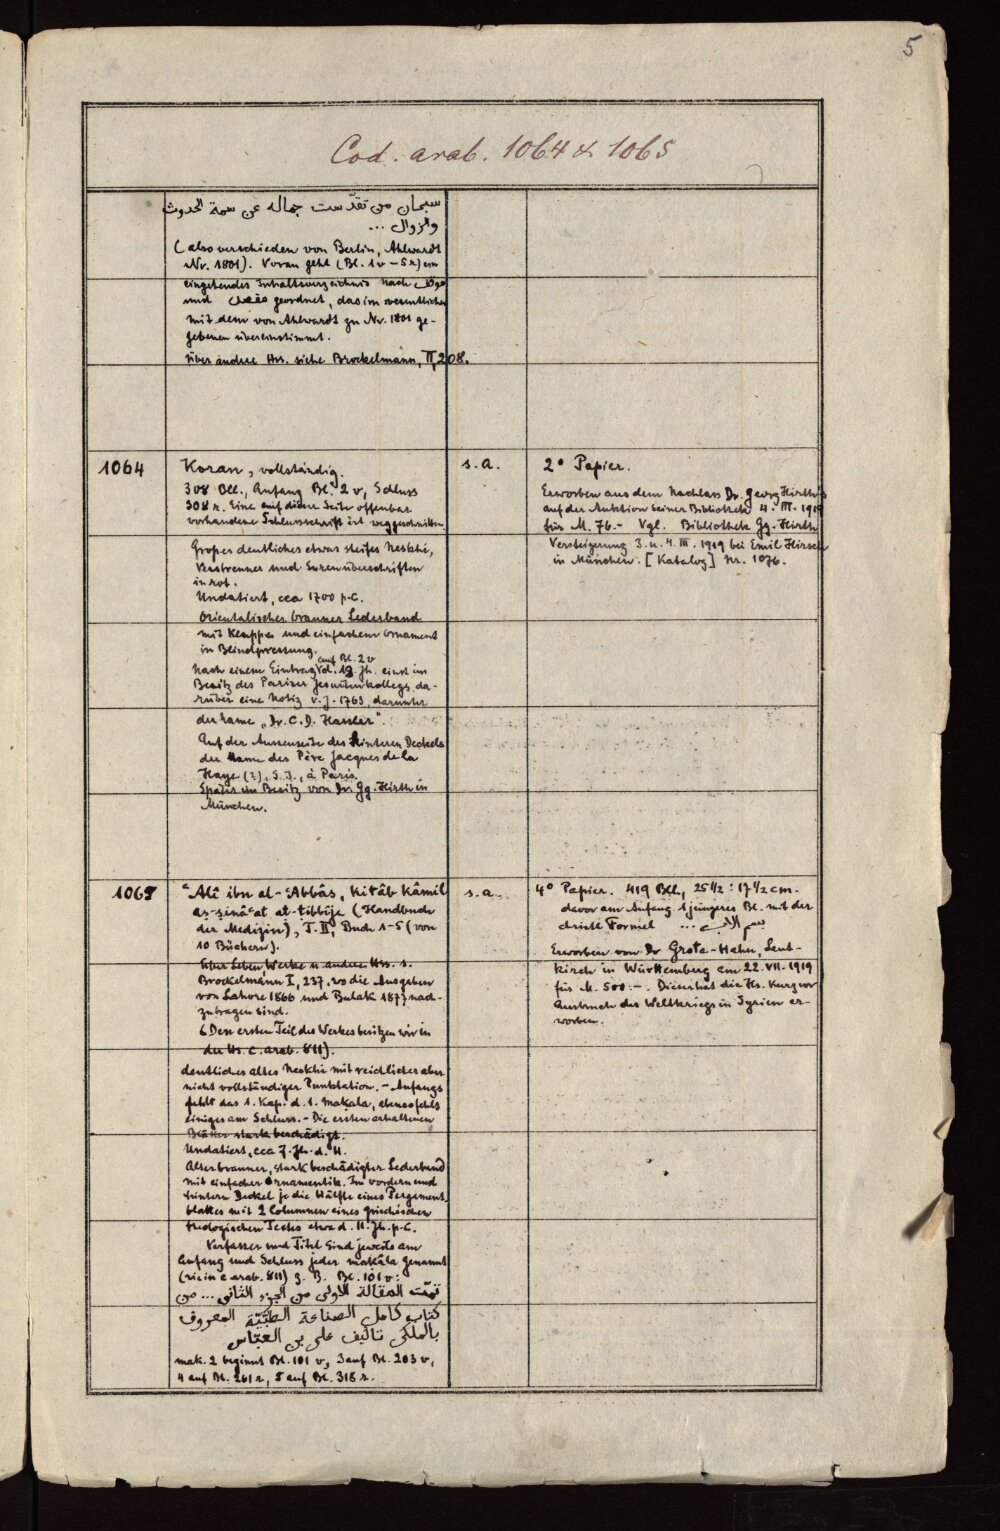 5
Cod. arab. 1064 & 1065
سبحان من تقدّست جماله عن سمة الحدوث
والزوال ...
(also verschieden von Berlin, Ahlwardt
Nr. 1801). Voran geht (Bl. 1v – 5r) ein
eingehendes Inhaltsverzeichnis nach موقف
und مقصد geordnet, das im wesentlichen
mit dem von Ahlwardt zu Nr. 1801 ge-
gebenen übereinstimmt.
Über andere Hss. siehe Brockelmann, II, 208.
1064
Koran, vollständig.
308 Bll., Anfang Bl. 2v, Schluss
308 r. Eine auf dieser Seite offenbar
vorhandene Schlussschrift ist weggeschnitten.
Großes deutliches etwas steifes Neskhi,
Verstrenner und Surenüberschriften
in rot.
Undatiert, cca 1700 p.C.
Orientalischer brauner Lederband
mit Klappe und einfachem Ornament
in Blindpressung.
Nach einem Eintrag auf Bl. 2v d. 18. Jh. einst im
Besitz des Pariser Jesuitenkollegs, da-
rüber eine Notiz v. J. 1763, darunter
der Name „Dr. C. D. Hassler".
Auf der Aussenseite des hinteren Deckels
der Name des Père Jacques de la
Haye (?), S.J., à Paris.
Später im Besitz von Dr. Gg. Hirth in
München.
s. a.
2° Papier.
Erworben aus dem Nachlass Dr. Georg Hirth's
auf der Auktion seiner Bibliothek 4. III. 1919
für M. 76.– Vgl. Bibliothek Gg. Hirth
Versteigerung 3. u. 4. III. 1919 bei Emil Hirsch
in München. [Katalog] Nr. 1076.
1065
ʿAlî ibn al-ʿAbbâs, Kitâb kâmil
aṣ-ṣinâʿat aṭ-ṭibbîje (Handbuch
der Medizin), T. II, Buch 1–5 (von
10 Büchern).
Über Leben, Werke u. andere Hss. s.
Brockelmann I, 237, wo die Ausgaben
von Lahore 1866 und Bulak 1877 nach-
zutragen sind.
(Den ersten Teil des Werkes besitzen wir in
der Hs. C. arab. 811).
Deutliches altes Neskhi mit reichlicher aber
nicht vollständiger Punktation. – Anfangs
fehlt das 1. Kap. d. 1. Makala, ebenso fehlt
einiges am Schluss. – Die ersten erhaltenen
Blätter stark beschädigt.
Undatiert, cca 7. Jh. d. H.
Alter brauner, stark beschädigter Lederband
mit einfacher Ornamentik. Im vordern und
hintern Deckel je die Hälfte eines Pergament-
blattes mit 2 Columnen eines griechischen
theologischen Textes etwa d. 11. Jh. p.C.
Verfasser und Titel sind jeweils am
Anfang und Schluss jeder makâla genannt
(wie in c. arab. 811) z. B. Bl. 101 v:
تمّت المقالة الاولى من الجزء الثاني ... من
كتاب كامل الصناعة الطبّيّة المعروف
بالملكى تاليف على بن العبّاس
mak. 2 beginnt Bl. 101 v, 3 auf Bl. 203 v,
4 auf Bl. 261 r, 5 auf Bl. 318 r.
s. a.
4° Papier. 419 Bll., 25 1/2 : 17 1/2 cm.
davor am Anfang 1 jüngeres Bl. mit der
christl Formel بسم الاب ...
Erworben von Dr Grota-Hahn, Leut-
kirch in Württemberg am 22. VII. 1919
für M. 500.–. Dieser hat die Hs. kurz vor
Ausbruch des Weltkriegs in Syrien er-
worben.